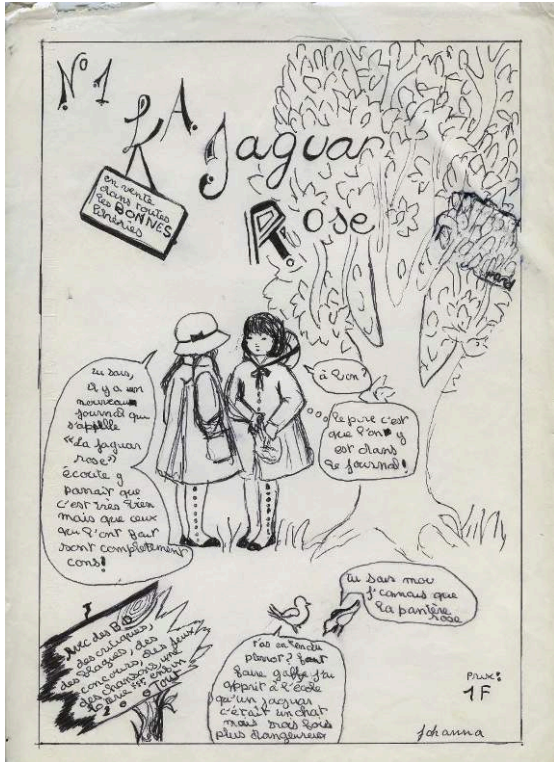 N° 1
LA
Jaguar
Rose
en vente
dans toutes
les BONNES
librairies
tu sais,
il y a un
nouveau
journal qui
s'appelle
"La jaguar
rose"
écoute y
parrait que
c'est très bien
mais que ceux
qui l'ont fait
sont complètement
cons!
à bon?
...le pire c'est
que l'on y
est dans
le journal!
tu sais moi
j'connais que
la pantère
rose
t'as entendu
pierrot? faut
faire gaffe j'ai
appris à l'école
qu'un jaguar
c'était un chat
mais trois fois
plus dangereux
Avec des BD
des critiques,
des blagues, des
concours, des jeux
des chansons, une
enfin
TOUT
Prix:
1F
Johanna